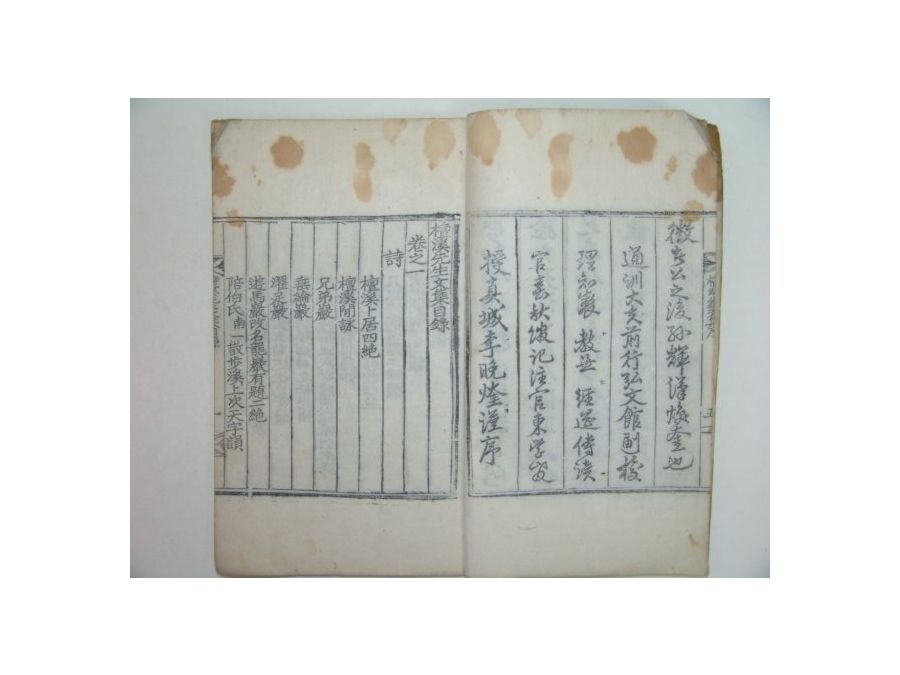 徵公之後孫輝漢煥奎也
通訓大夫前行弘文館副校
理知製 教兼 經筵侍讀
官春秋館記注官東學教
授真城李晚煃謹序
檀溪先生文集目錄
卷之一
詩
檀溪卜居四絶
檀溪閒詠
兄弟巖
垂綸巖
濯足巖
遊馬巖改名龍巖有題二絶
陪伯氏南一散步溪上次天字韻